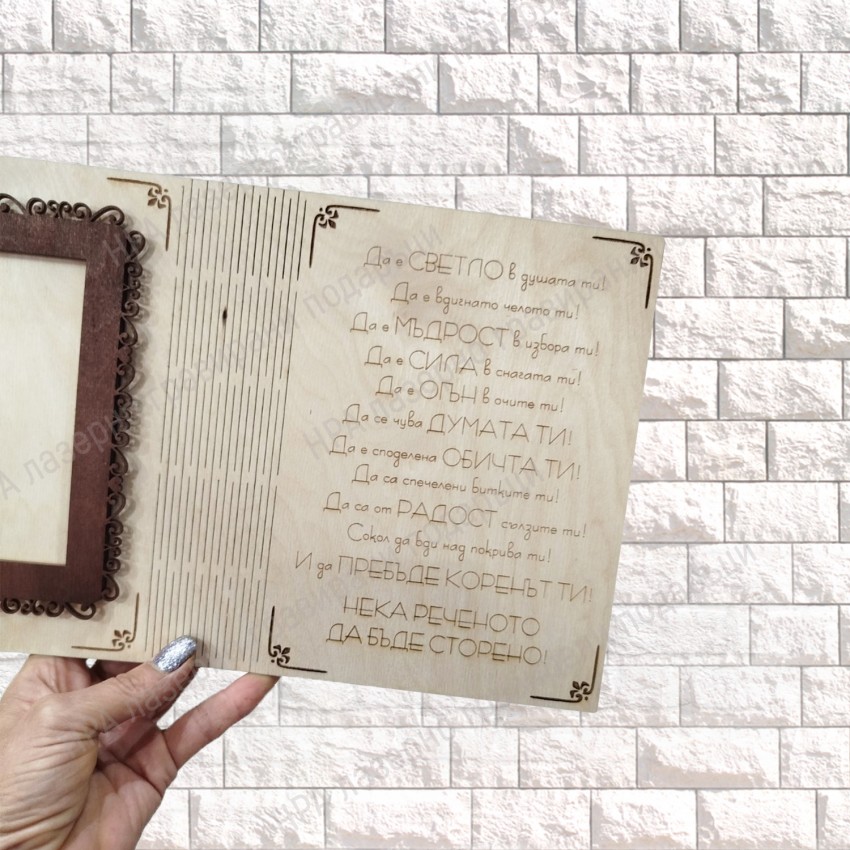 Да е СВЕТЛО в душата ти!
Да е вдигнато челото ти!
Да е МЪДРОСТ в избора ти!
Да е СИЛА в снагата ти!
Да е ОГЪН в очите ти!
Да се чува ДУМАТА ТИ!
Да е споделена ОБИЧТА ТИ!
Да са спечелени битките ти!
Да са от РАДОСТ сълзите ти!
Сокол да бди над покрива ти!
И да ПРЕБЪДЕ КОРЕНЪТ ТИ!
НЕКА РЕЧЕНОТО
ДА БЪДЕ СТОРЕНО!